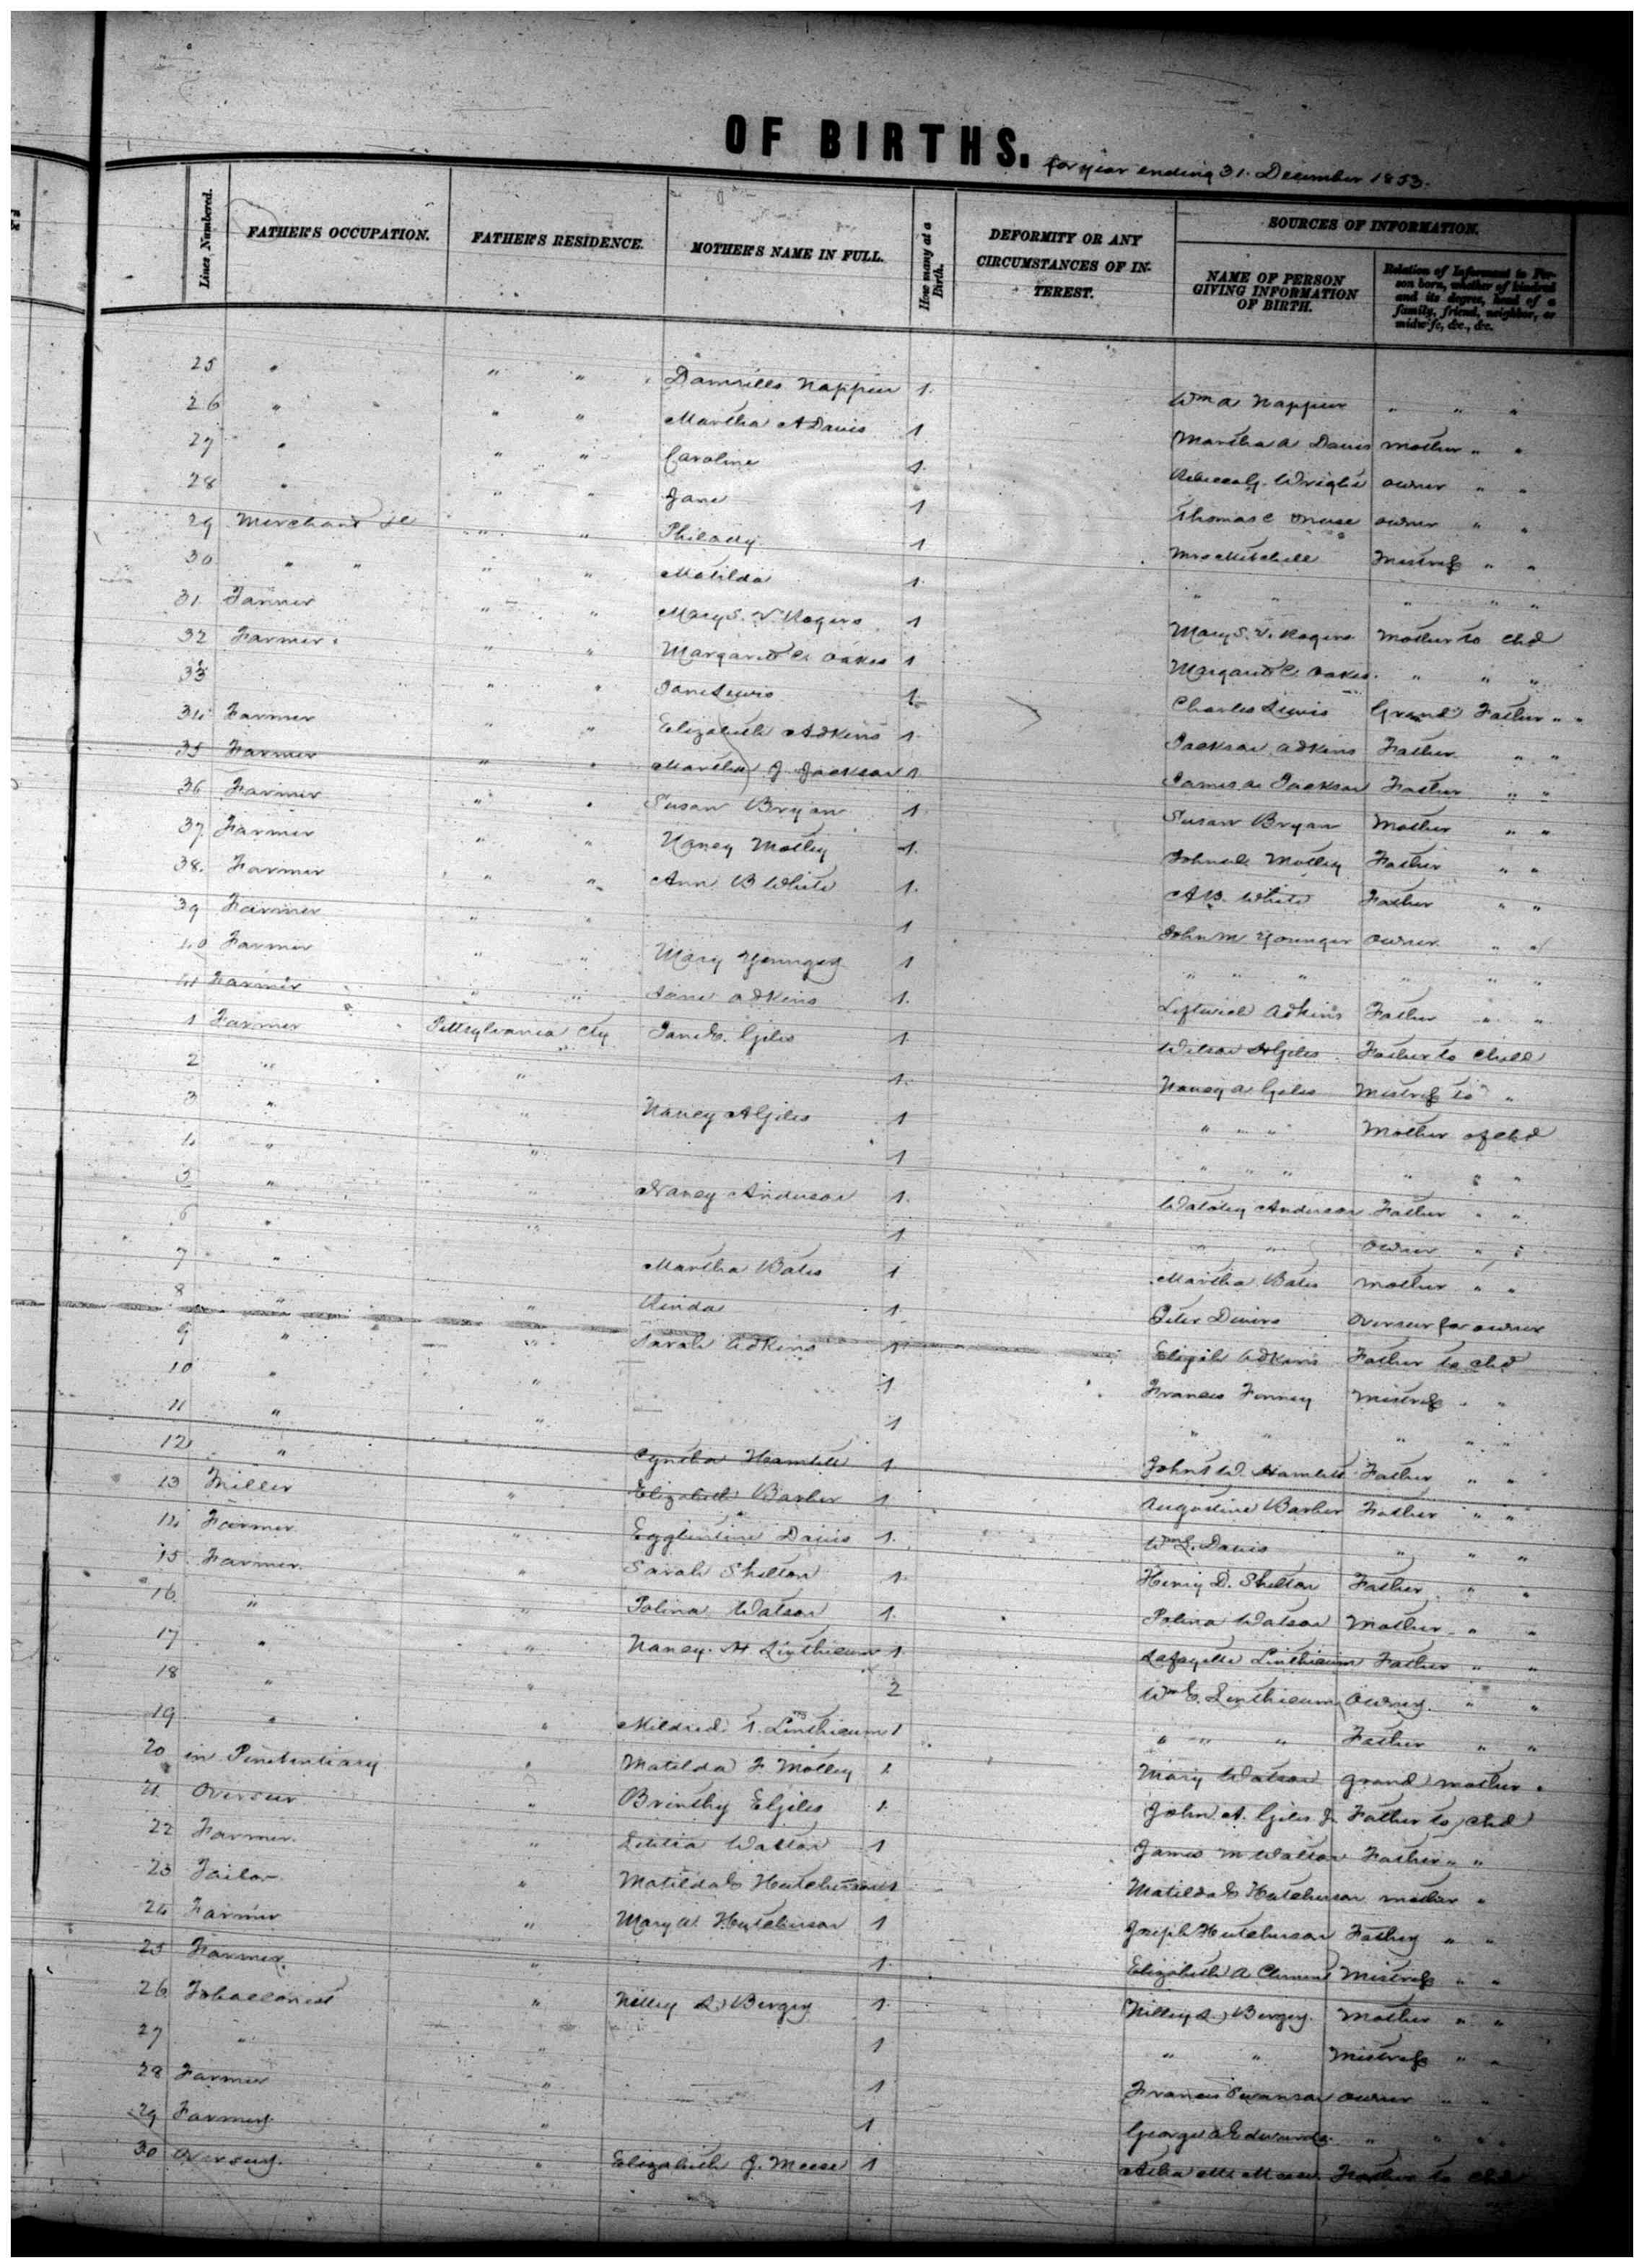 OF BIRTHS. for year ending 31. December 1853.
Lines Numbered. FATHER'S OCCUPATION. FATHER'S RESIDENCE. MOTHER'S NAME IN FULL. How many at a Birth. DEFORMITY OR ANY CIRCUMSTANCES OF INTEREST. SOURCES OF INFORMATION.
NAME OF PERSON GIVING INFORMATION OF BIRTH. Relation of Informant to Person born, whether of kindred and its degree, head of a family, friend, neighbor, or midwife, &c., &c.
25 " " " Nappier 1. Wm A Nappier " " "
26 " " " Martha A Davis 1 Martha A Davis mother " "
27 " " " Caroline 1. Wright owner " "
28 " " " Jane 1 Thomas C owner " "
29 Merchant &c " " 1 Mrs Mitchell Mistress " "
30 " " " " Matilda 1. " " " " "
31. " " Mary S. V. Rogers 1 Mary S. V. Rogers Mother to chd
32 Farmer. " " Margaret C. Oakes 1 Margaret C. Oakes. " " "
33 " " Jane Lewis 1. Charles Lewis Grand Father " "
34 Farmer " Elizabeth Adkins 1. Jackson Adkins Father " "
35 Farmer " " Martha J Jackson 1 James A Jackson Father " "
36 Farmer " " Susan Bryan 1. Susan Bryan Mother " "
37. Farmer " " Nancy Motley 1. Motley Father " "
38. Farmer " " Ann B White 1. A B. White Father " "
39 Farmer " " 1 John M Younger owner " "
40 Farmer " " Mary Younger 1 " " " " " "
41 Farmer " " Jane Adkins 1. Leftwich Adkins Father " "
1 Farmer Pittsylvania Cty Jane E. Giles 1 Giles Father to child
2 " " 1. Nancy A Giles Mistress to "
3 " " Nancy A Giles 1 " " " Mother of chd
4. " " 1 " " " " " "
5 " " Nancy Anderson 1. Anderson Father " "
6 " " 1. " " owner " "
7 " Martha Bates 1 Martha Bates mother " "
8 " " 1. Peter Overseer for owner
9 " " Sarah Adkins 1 Elijah Adkins Father to chd
10 " " 1 Frances Mistress " "
11 " " 1 " " " " "
12 " Hamlett 1 John W. Hamlett Father " "
13 Miller " Elizabeth Barber 1 Augustine Barber Father " "
14 Farmer " Davis 1. Wm L. Davis " " "
15 Farmer. " Sarah Shelton 1. Henry D. Shelton Father " "
16 " " Polina Watson 1. Polina Watson Mother " "
17 " " Nancy H Linthicum 1. Lafayette Linthicum Father " "
18 " " 2 Wm E. Linthicum Owner " "
19 " " Mildred Linthicum 1 " " " Father " "
20 in Penitentiary " Matilda F Motley 1. Mary Watson grand mother "
21 Overseer " Giles 1. John A. Giles Jr Father to chd
22 Farmer. " Letitia Walton 1 James M Walton Father " "
23 Tailor " Matilda Hutcherson 1 Matilda Hutcherson mother "
24 Farmer " Mary A Hutcherson 1 Joseph Hutcherson Father " "
25 Farmer. " 1. Elizabeth A Clement Mistress " "
26 Tobacconist " Berger 1. Berger. Mother " "
27 " " 1 " " Mistress " "
28 Farmer " 1 Francis Swanson owner " "
29 Farmer " 1 George Edwards " " "
30 Overseer. " Elizabeth J. Meese 1 Father to chd